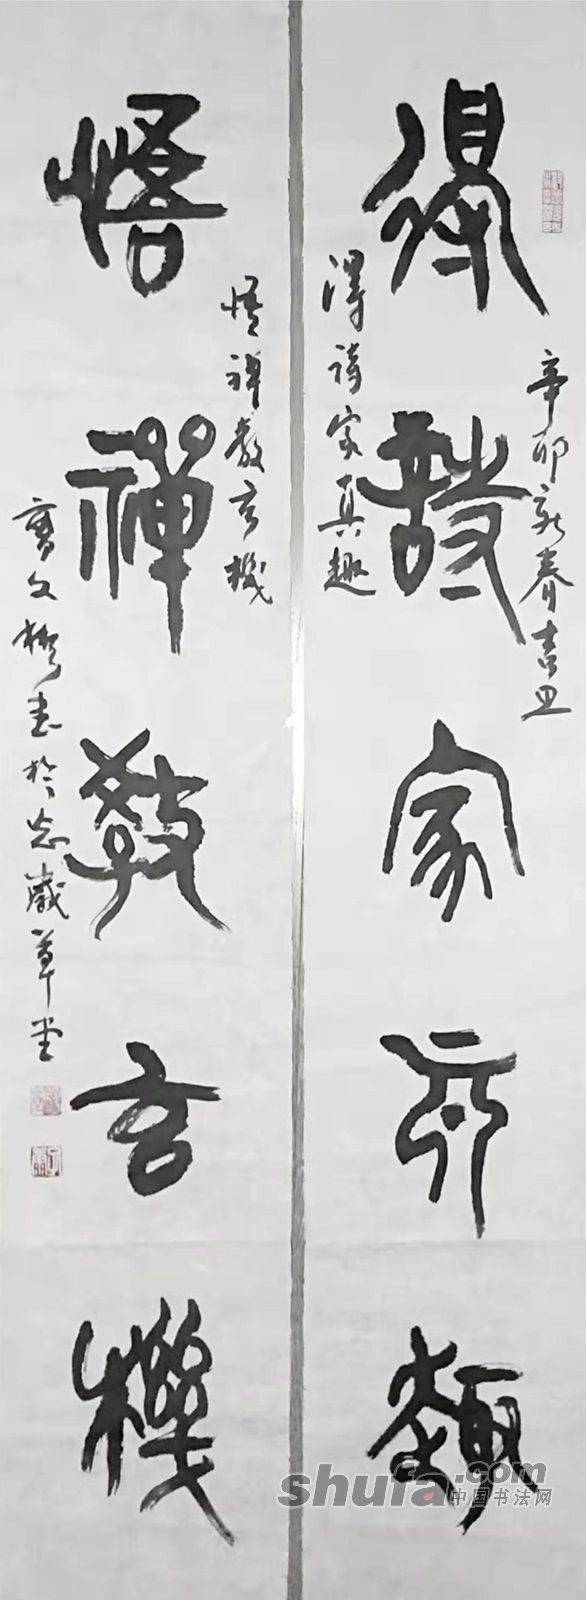 得詩家真趣
辛卯新春吉旦
得詩家真趣
悟禪教玄機
悟禪教玄機
文彬書於草堂
shufa.com
中国书法网